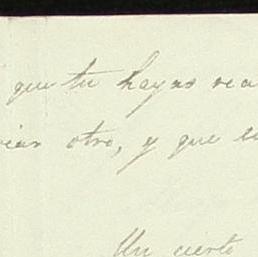 que tu hayas rea
otro, y que
Un cierto